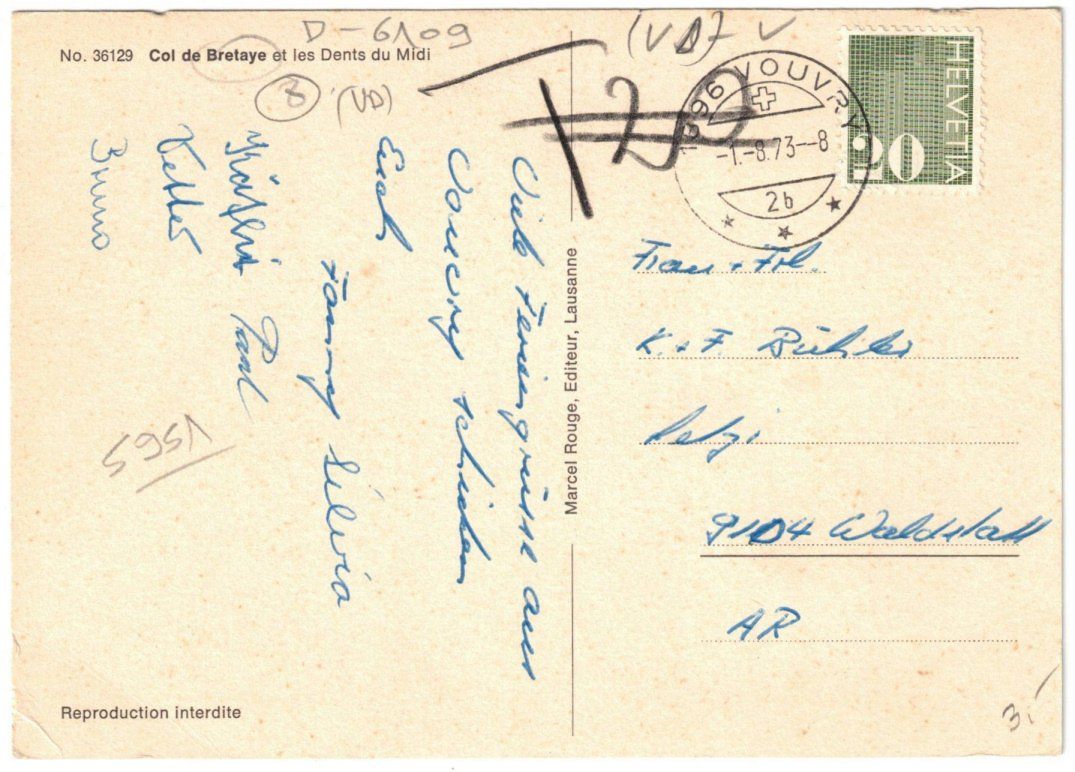 D-6109
(VD)-V
No. 36129 Col de Bretaye et les Dents du Midi
8 (VD)
T 20
1896 VOUVRY
-1.-8.73--8
2b
HELVETIA
20
Viele Feriengrüsse aus
Vouvry schicken
Euch
Fanny Silvia
Paul
Vetter
Bruno
5951
Marcel Rouge, Editeur, Lausanne
Frau + Frl.
K. + F. Bühler
9104 Waldstatt
AR
Reproduction interdite
3.-